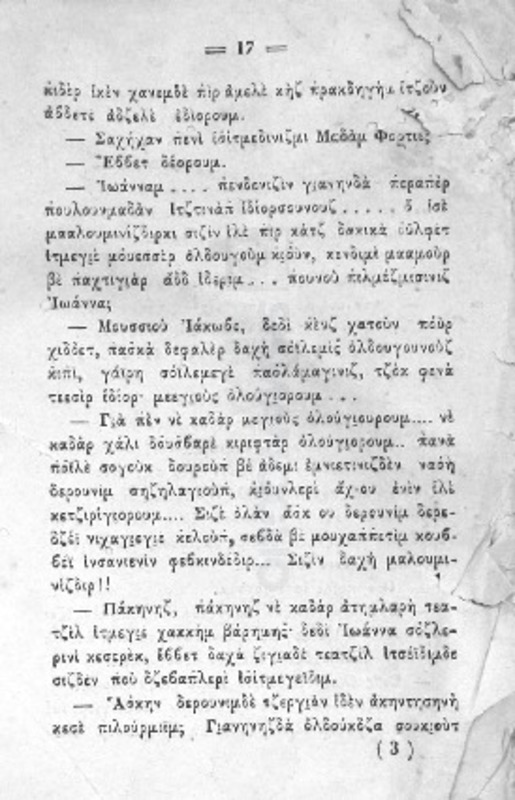 = 17 =
κιδὲρ ἰκὲν χανεμδὲ πὶρ ἀμελὲ κὴζ πρακδηγὴμ ἰτζοῦν
ἀδδετὲ ἀδζελὲ ἐδίορουμ.
— Σαχήχαν πενὶ ἰσίτμεδινιζμι Μαδὰμ Φορτιὲ;
— Ἔββετ δέορουμ.
— Ἰωάνναμ .... πενδενιζὶν γιανηνδὰ περαπὲρ
πουλουνμαδὰν ἰτζτινὰπ ἰδίορσουνουζ ..... ὃ ἰσὲ
μααλουμινίζδιρκι σιζὶν ἰλὲ πὶρ κὰτζ δακικὰ οὐλφὲτ
ἰτμεγιὲ μούεσσὲρ ὀλδουγοῦμ κιοὺν, κενδιμὶ μααμοὺρ
βὲ παχτιγιὰρ ἀδδ ἰδέριμ... πουνοὺ πιλμέζμισινιζ
Ἰωάννα;
— Μουσσιοὺ Ἰάκωβε, δεδὶ κὲνζ χατοὺν πεὺρ
χιδδὲτ, πασκὰ δεφαλὲρ δαχὴ σεϊλεμὶς ὀλδουγουνοὺζ
κιπὶ, γάϊρη σόϊλεμεγὲ πασλάμαγινιζ, τζὸκ φενὰ
τεεσὶρ ἰδίορ· μεεγιοὺς ὀλούγιορουμ ...
— Γιὰ πὲν νὲ καδὰρ μεγιοὺς ὀλούγιουρουμ.... νὲ
καδὰρ χάλι δουσβαρὲ κιριφτὰρ ὀλούγιορουμ.. πανὰ
πόϊλὲ σογεοὺκ δουρεοὺπ βὲ ἀδεμὶ ἐμνιετινιζδὲν ναση
δερουνὶμ σηζηλαγιοὺπ, κιουνλερὶ ἄχ-ου ἐνὶν ἰλὲ
κετζιρίγιορουμ.... Σιζὲ ὀλὰν ἀσκ ου δερουνὶμ δερε-
δζέϊ νιχαγιεγιὲ κελοὺπ, σεβδὰ βὲ μουχαππετὶμ κουβ-
βέϊ ἰνσανιενὶν φεβκινδέδιρ... Σιζὶν δαχὴ μαλουμι-
νίζδιρ!!
— Πάκηνηζ, πάκηνηζ νὲ καδὰρ ἀτημλαρὴ τεα-
τζὶλ ἰτμεγιὲ χακκὴμ βάρημης· δεδὶ Ἰωάννα σόζλε-
ρινὶ κεσερὲκ, ἔββετ δαχὰ ζιγιαδὲ τεατζὶλ ἰτσέϊδιμδε
σιζδὲν ποὺ δζεβαπλερὶ ἰσίτμεγεϊδιμ.
— Ἄσκην δερουνιμδὲ τζεργιὰν ἰδὲν ἀκηντησηνὴ
κεσὲ πιλούρμιϊμ; Γιανηνηζδὰ ὀλδούκδζα σουκιοὺτ
( 3 )